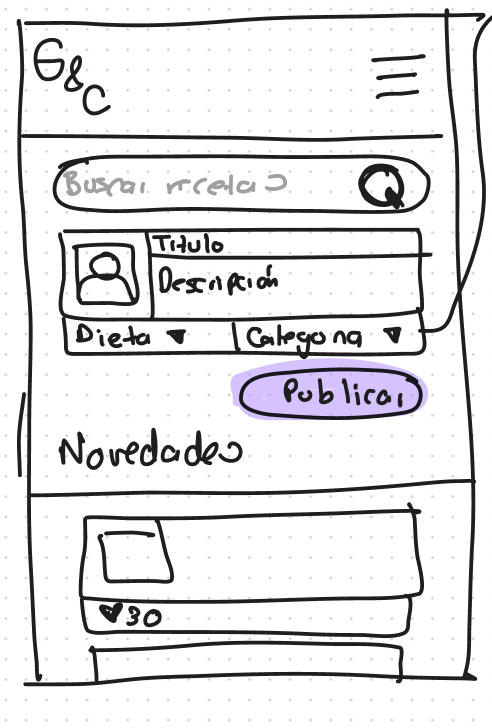 G&C
Buscar recetas
Titulo
Descripción
Dieta ▼ Categoria ▼
Publicar
Novedades
♥30